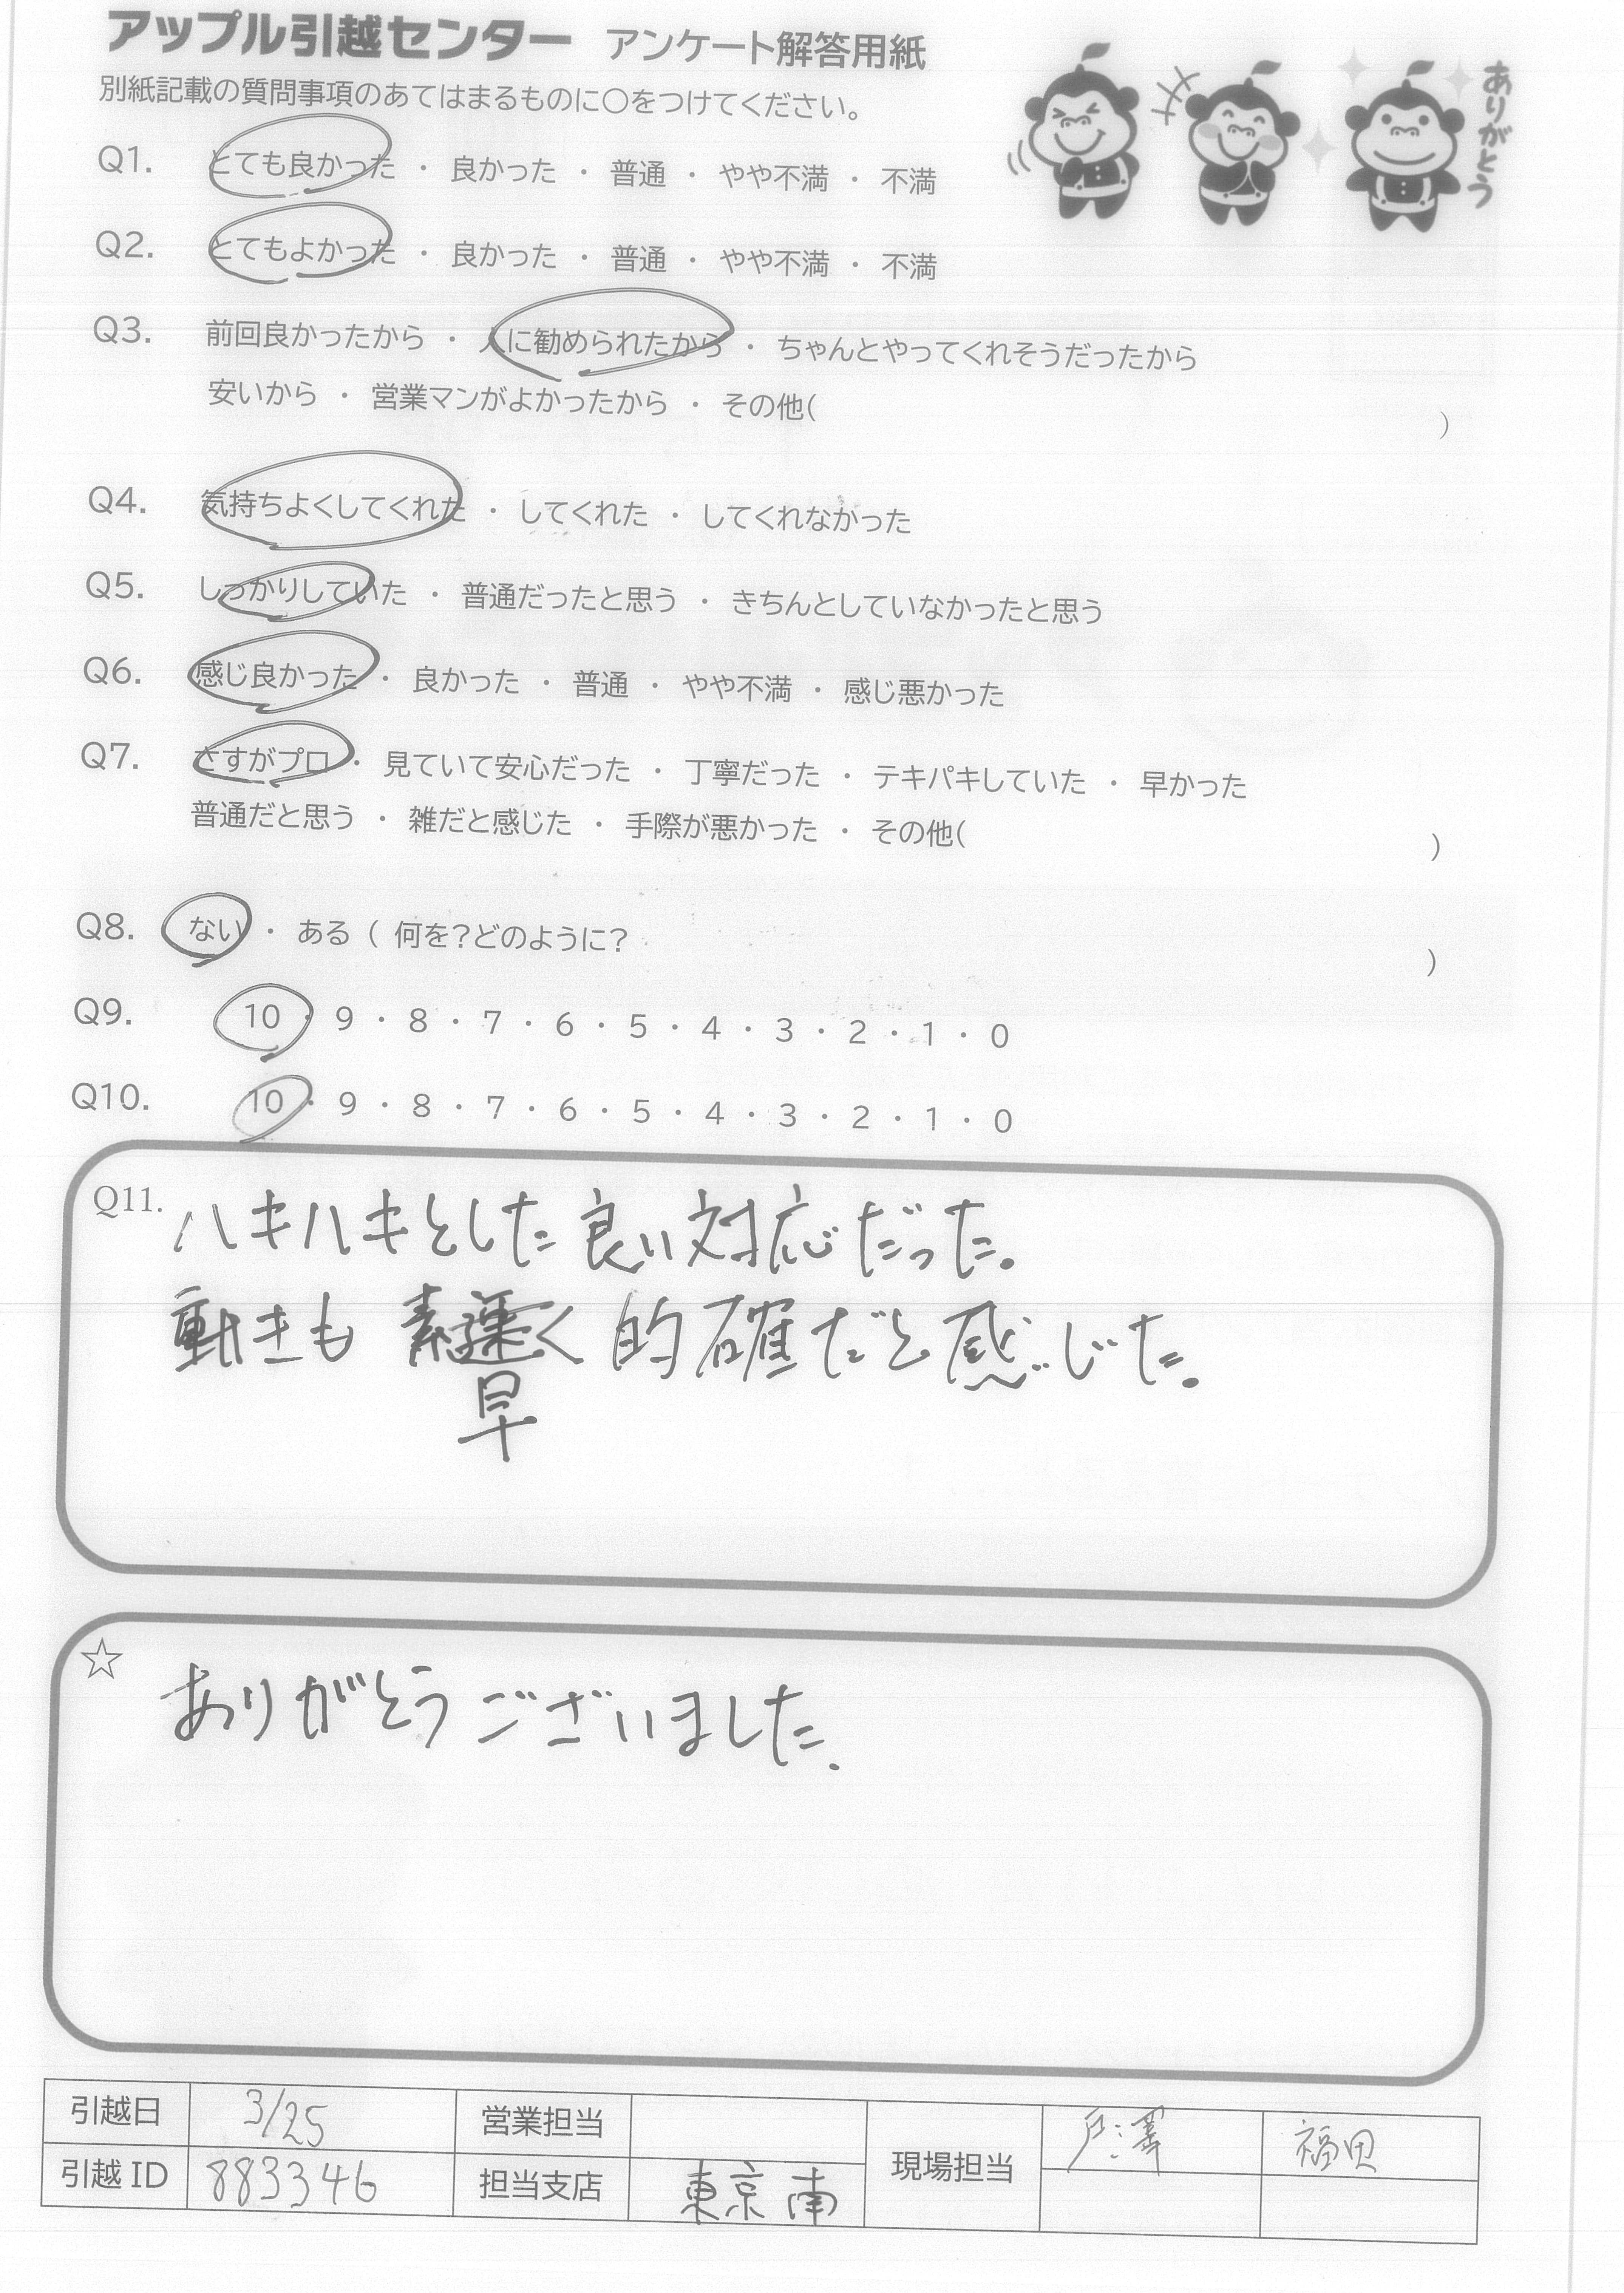 アップル引越センター アンケート解答用紙
別紙記載の質問事項のあてはまるものに○をつけてください。
ありがとう
Q1. とても良かった ・ 良かった ・ 普通 ・ やや不満 ・ 不満
Q2. とてもよかった ・ 良かった ・ 普通 ・ やや不満 ・ 不満
Q3. 前回良かったから ・ 人に勧められたから ・ ちゃんとやってくれそうだったから
安いから ・ 営業マンがよかったから ・ その他( )
Q4. 気持ちよくしてくれた ・ してくれた ・ してくれなかった
Q5. しっかりしていた ・ 普通だったと思う ・ きちんとしていなかったと思う
Q6. 感じ良かった ・ 良かった ・ 普通 ・ やや不満 ・ 感じ悪かった
Q7. さすがプロ ・ 見ていて安心だった ・ 丁寧だった ・ テキパキしていた ・ 早かった
普通だと思う ・ 雑だと感じた ・ 手際が悪かった ・ その他( )
Q8. ない ・ ある ( 何を?どのように? )
Q9. 10 ・ 9 ・ 8 ・ 7 ・ 6 ・ 5 ・ 4 ・ 3 ・ 2 ・ 1 ・ 0
Q10. 10 ・ 9 ・ 8 ・ 7 ・ 6 ・ 5 ・ 4 ・ 3 ・ 2 ・ 1 ・ 0
Q11. ハキハキとした良い対応だった。
動きも素く的確だと感じた。
早
☆ ありがとうございました.
引越日 3/25 営業担当 現場担当 戸澤 福田
引越 ID 883346 担当支店 東京南